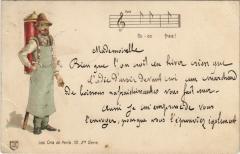 Co-co frais!
Mademoiselle
Bien que l'on soit en hiver, rien que
l'idée d'avoir devant soi un marchand
de boissons rafraichissantes vous fait
Aussi je m'empresse de vous
l'envoyer, pour que vous l'éprouviez également
Les Cris de Paris. 10. 2e Série.